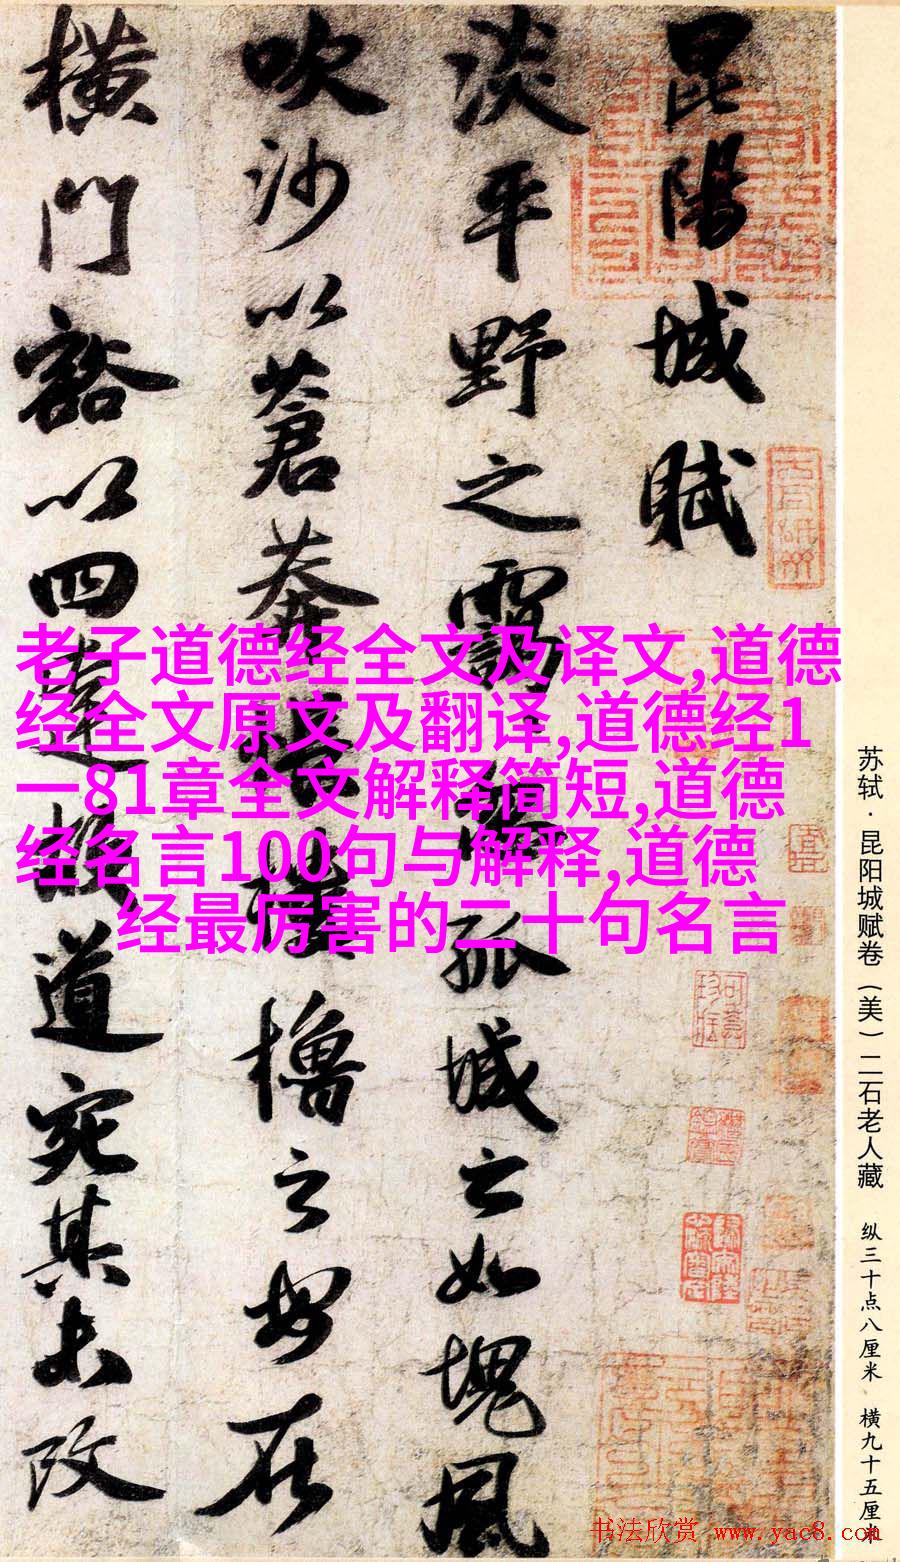 昆陽城賦
淡平野之靄〻忽孤城之如塊風
吹沙以蒼莽悵樓櫓之安在
橫門豁以四達故道宛其未改
老子道德经全文及译文,道德
经全文原文及翻译,道德经1
一81章全文解释简短,道德
经名言100句与解释,道德
经最厉害的二十句名言
苏轼·昆阳城赋卷（美）二石老人藏 纵三十点八厘米 横九十五厘米
书法欣赏 www.yac8.com